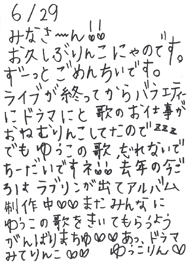 6/29
みなさーん!!
お久しぶりんこにゃのです。
ずーっとごめんちぃです。
ライブが終ってからバラエティ
にドラマにと歌のお仕事が
おねむりんこしてたのでzzz
でもゆうこの歌忘れないで
ちーだいですネ!! 去年の今ご
ろはラブリンが出てアルバム
制作中♡♡またみんなに
ゆうこの歌をきいてもらうよう
がんばりまちゅ♡♡あっ、ドラマ
みてりんこ♡♡ ゆうこりん♡